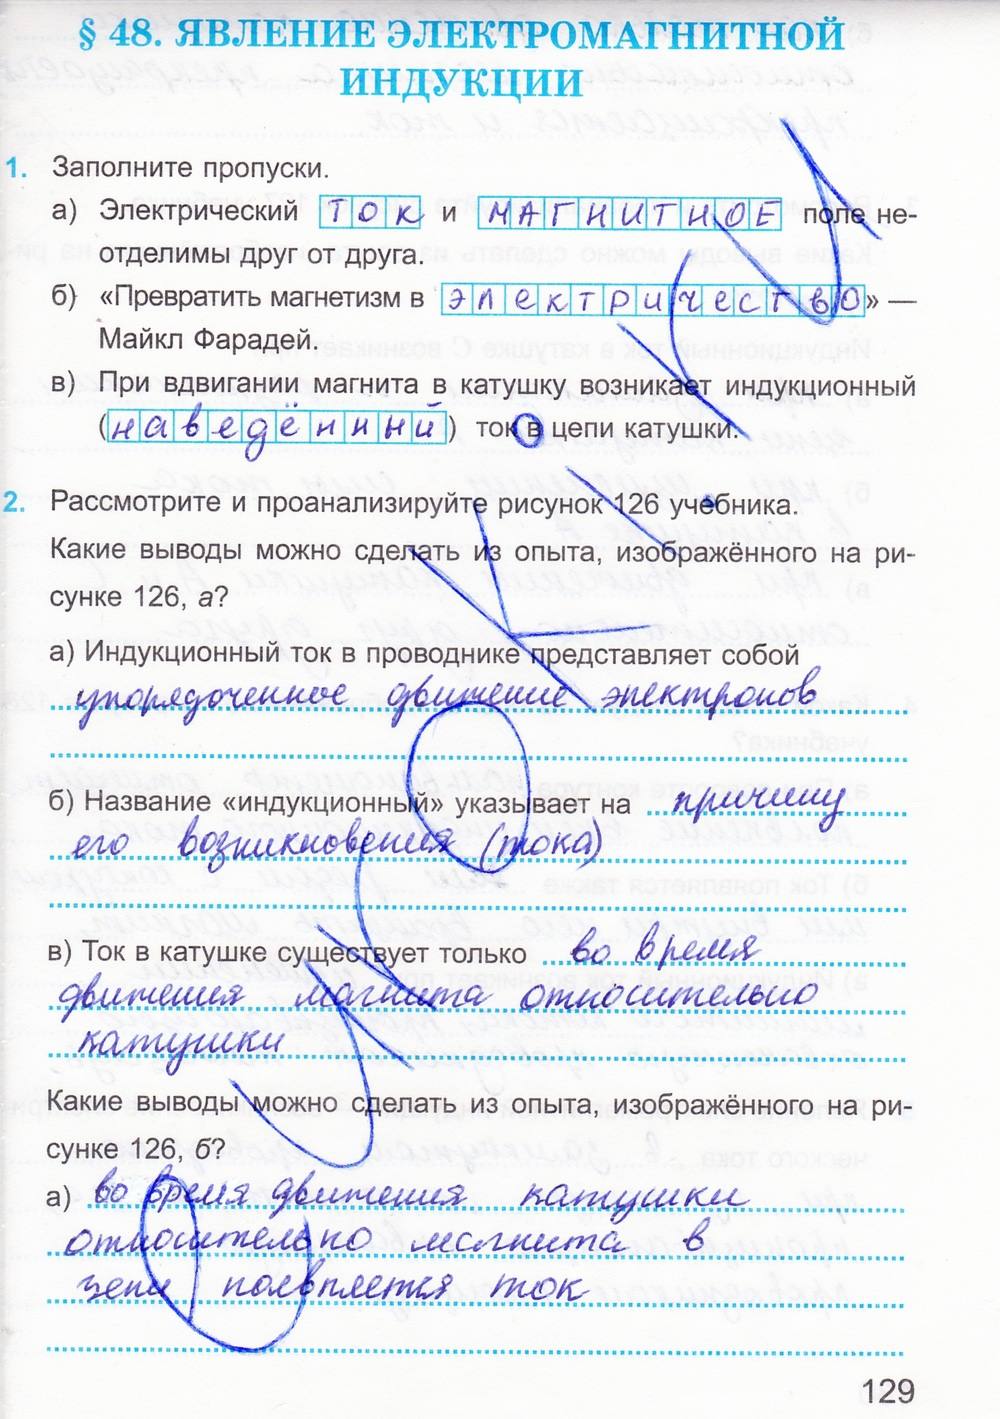 § 48. ЯВЛЕНИЕ ЭЛЕКТРОМАГНИТНОЙ
ИНДУКЦИИ
1. Заполните пропуски.
а) Электрический ТОК и МАГНИТНОЕ поле не-
отделимы друг от друга.
б) «Превратить магнетизм в электричество» —
Майкл Фарадей.
в) При вдвигании магнита в катушку возникает индукционный
(наведённый) ток в цепи катушки.
2. Рассмотрите и проанализируйте рисунок 126 учебника.
Какие выводы можно сделать из опыта, изображённого на ри-
сунке 126, а?
а) Индукционный ток в проводнике представляет собой
упорядоченное движение электронов
б) Название «индукционный» указывает на причину
его возникновения (тока)
в) Ток в катушке существует только во время
движения магнита относительно
катушки
Какие выводы можно сделать из опыта, изображённого на ри-
сунке 126, б?
а) во время движения катушки
относительно магнита в
цепи появляется ток
129